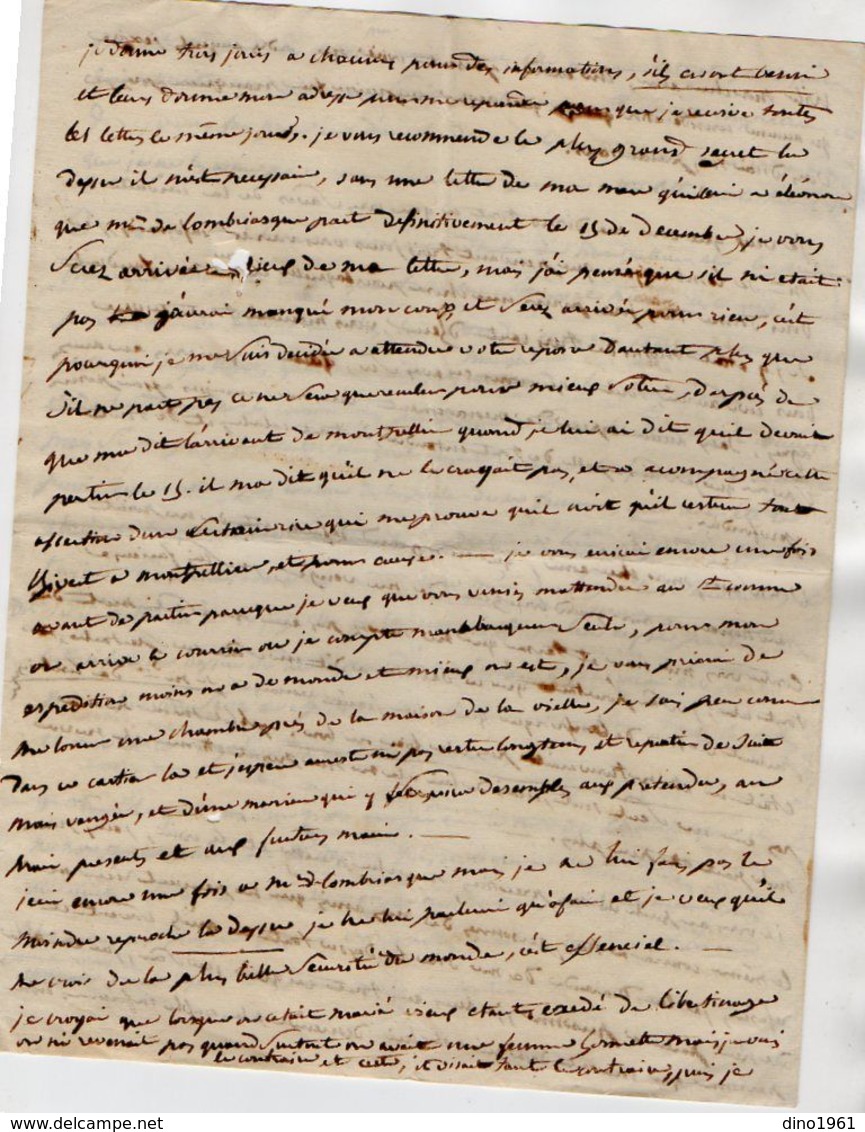 je donne trois jours a chacun pour des informations, s'ils en ont besoin
et leurs donne mon adresse pour me repondre pour que je recoive toutes
les lettres le même jour. je vous recommende le plus grand secret la
dessu il n'est necessaire, sans une lettre de ma mere qu'il a éléonore
que mr de lombriasque part definitivement le 15 de decembre, je vous
serez arrivée au lieus de ma lettre, mais j'ai pensé que s'il ni etait
pas j'aurai manqué mon coup, et serez arrivée pour rien, c'est
pourquoi je me suis decidée a attendre votre reponse d'autant plus que
s'il ne part pas ce ne sera que reculer pour mieux sauter, d'après ce
que ma dit l'arrivant de montpellier quand je lui ai dit qu'il devait
partir le 15. il ma dit qu'il ne le croyait pas, et a acompagné cette
assertion d'un certain rire qui me prouve qu'il croit qu'il restera tout
l'hivert a montpellier, et pour cause. — je vous ecrirai encore une fois
avant de partir parceque je veux que vous veniez m'attendre au comme
on arrive le courrier ou je compte m'embarquer seule, pour mon
expedition moins on a de monde et mieux on est, je vous prierai de
me louer une chambre près de la maison de la vielle, je suis peu connue
dans ce cartier la et j'espere aussi ni pas rester longtems et repartir de suite
mais vengée, et d'une maniere qui servira d'exemple aux pretendus, aux
mari presents et aux futurs mari. —
j'ecri encore une fois a mr de lombriasque mais je ne lui fais pas le
moindre reproche la dessu je ne lui parlerai qu'ofair et je veux qu'il
me croie de la plus belle securité du monde, c'est essenciel. —
je croyai que lorsque on etait marié vieux etant, exedé de libertinage
on ni revenait pas quand surtout on avait une femme honnette mais je vois
le contraire et cete, et disait tant le contraire, puis je